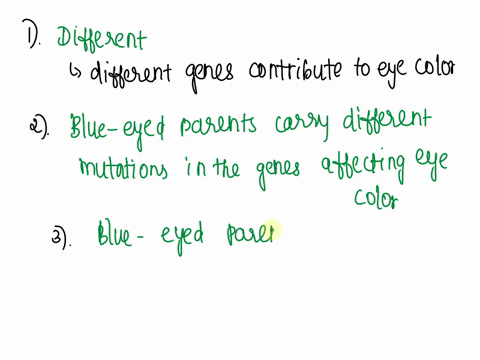 1). Different
↳ different genes contribute to eye color
2). Blue-eyed parents carry different
mutations in the genes affecting eye
color
3). Blue- eyed paren